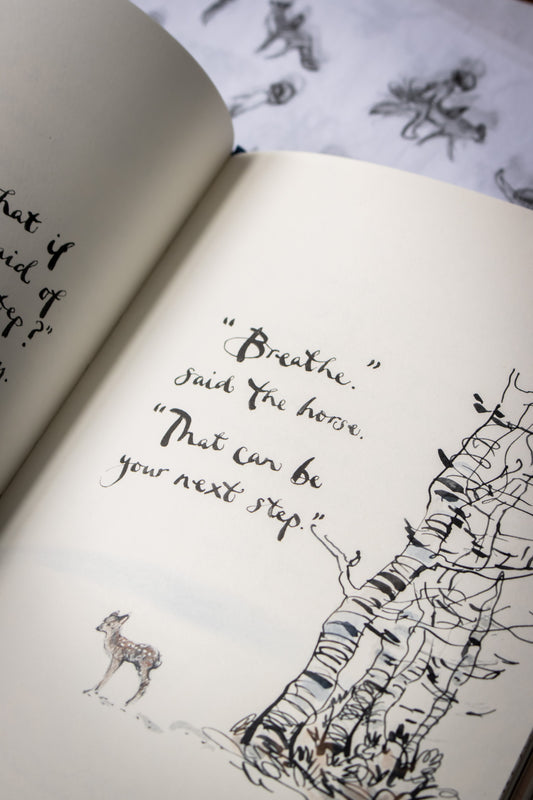 hat if
aid of
tep?"
y.
"Breathe."
said the horse.
"That can be
your next step."